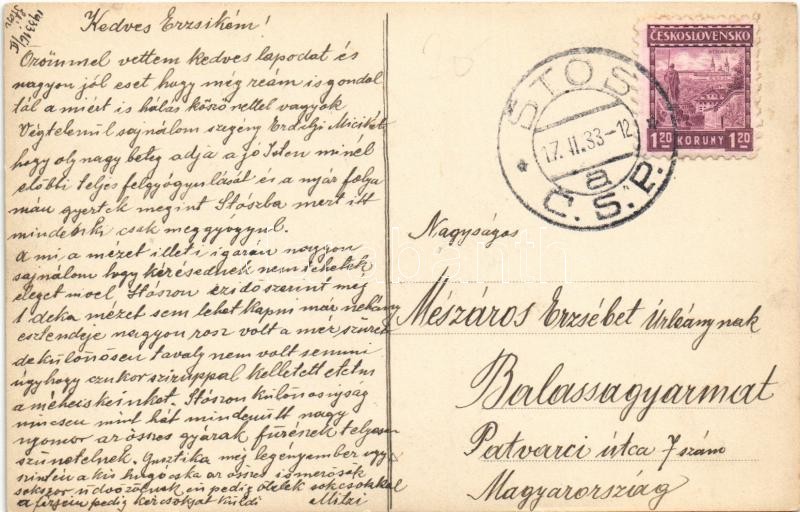 1933 16/II
Kedves Erzsikém!
Örömmel vettem kedves lapodat és
nagyon jól eset hogy még reám is gondol
tál a miért is hálás köszönettel vagyok
Végtelenül sajnálom szegény Erdélyi Miciket
hogy oly nagy beteg adja a jó Isten minél
előbbi teljes felgyógyulását és a nyár folya
mán gyertek megint Stószba mert itt
mindenki csak meggyógyul.
A mi a mézet illeti igazán nagyon
sajnálom hogy kérésednek nem tehetek
eleget mivel Stószon ezidőszerint még
1 deka mézet sem lehet kapni már nehány
esztendeje nagyon rosz volt a mez szüret
de különösen tavaly nem volt semmi
úgy hogy czukor sziruppal kelletett etetni
a méheiskeinket. Stószon különösség
nincsen mint hát mindenütt nagy
nyomor az összes gyárak fürének teljesen
szünetelnek. Gusztika még legényember úgy
szintén a kis hugócska az összes ismerősök
sokszor üdvözölnek én pedig ölelek sokcsókkal
a férjem pedig kézcsókját küldi Mitzi
ČESKOSLOVENSKO
1.20 KORUNY 1.20
ŠTOS
17.II.33-12
a
Č.S.P.
Nagyságos
Mészáros Erzsébet Úrleánynak
Balassagyarmat
Patvarci útca 7 szám
Magyarország